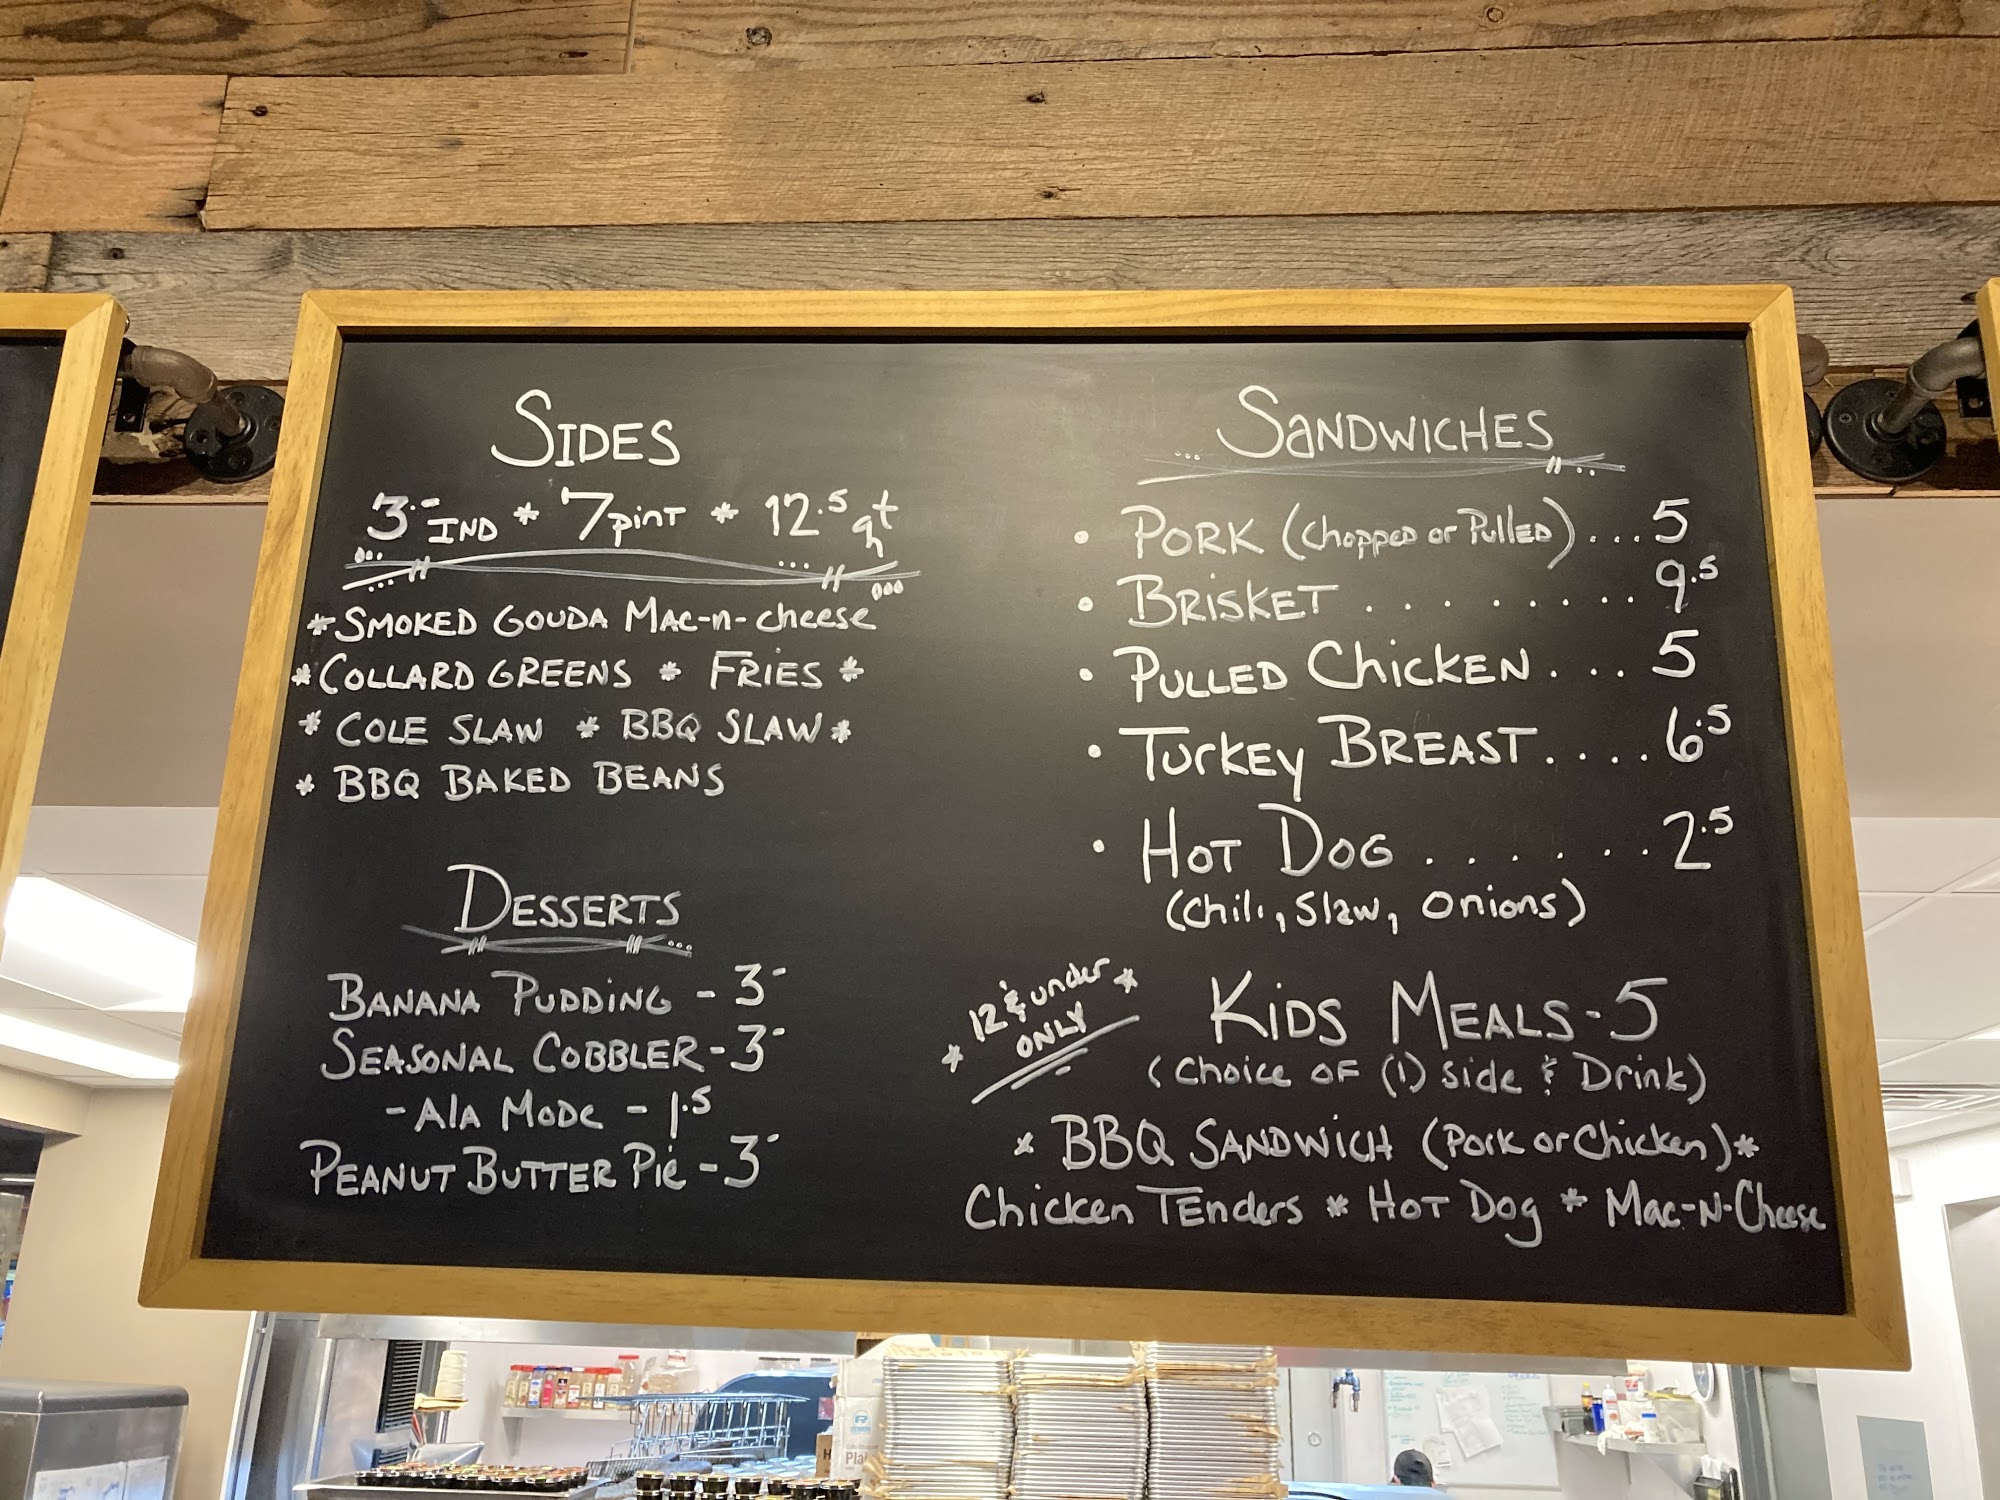 SIDES
3.- IND * 7 pint * 12.5 qt
*SMOKED GOUDA Mac-n-cheese
*COLLARD GREENS * FRIES *
* COLE SLAW * BBQ SLAW *
* BBQ BAKED BEANS
DESSERTS
BANANA PUDDING - 3-
SEASONAL COBBLER - 3-
- Ala Mode - 1.5
PEANUT BUTTER Pie - 3-
SANDWICHES
• PORK (Chopped or Pulled) ... 5
• BRISKET ......... 9.5
• PULLED Chicken ... 5
• Turkey BREAST .... 6.5
• HOT DOG ...... 2.5
(Chili, Slaw, Onions)
* 12 & under *
ONLY
KiDS MEALS - 5
(Choice OF (1) Side & Drink)
* BBQ SANDWICH (Pork or Chicken) *
Chicken TEnders * HOT Dog * Mac-N-Cheese